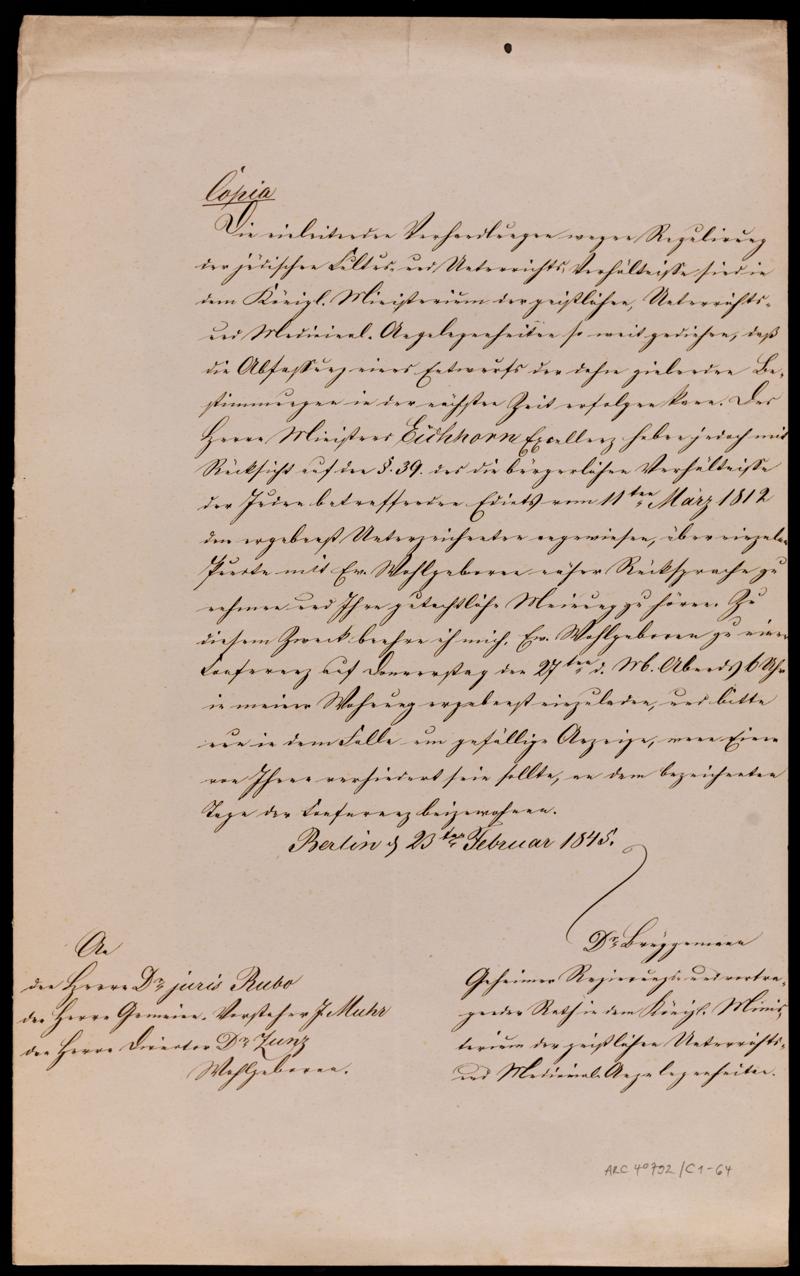 Copia
Die einleitenden Verhandlungen wegen Regulirung
der jüdischen Cultus- und Unterrichts-Verhältnisse sind in
dem Königl. Ministerium der geistlichen, Unterrichts-
und Medicinal-Angelegenheiten so weit gediehen, daß
die Abfassung eines Entwurfs der dahin zielenden Be-
stimmungen in der nächsten Zeit erfolgen kann. Des
Herrn Ministers Eichhorn Excellenz haben jedoch mit
Rücksicht auf den §. 39. des die bürgerlichen Verhältnisse
der Juden betreffenden Edicts vom 11ten März 1812
den ergebenst Unterzeichneten angewiesen, über einzelne
Punkte mit Ew. Wohlgeboren näher Rücksprache zu
nehmen und Ihre gutachtliche Meinung zu hören. Zu
diesem Zweck beehre ich mich, Ew. Wohlgeboren zu einer
Conferenz auf Donnerstag den 27ten d. M. Abends 6 Uhr
in meiner Wohnung ergebenst einzuladen, und bitte
nur in dem Falle um gefällige Anzeige, wenn Einer
von Ihnen verhindert sein sollte, an dem bezeichneten
Tage der Conferenz beizuwohnen.
Berlin d 23ten Februar 1845.
Dr. Brüggemann
Geheimer Regierungs- und vortra-
gender Rath in dem Königl. Minis-
terium der geistlichen Unterrichts-
und Medicinal-Angelegenheiten.
An
den Herrn Dr. juris Rubo
den Herrn Gemeinde-Vorsteher J. Muhr
den Herrn Director Dr. Zunz
Wohlgeboren.
ARC 4° 792/C1-64